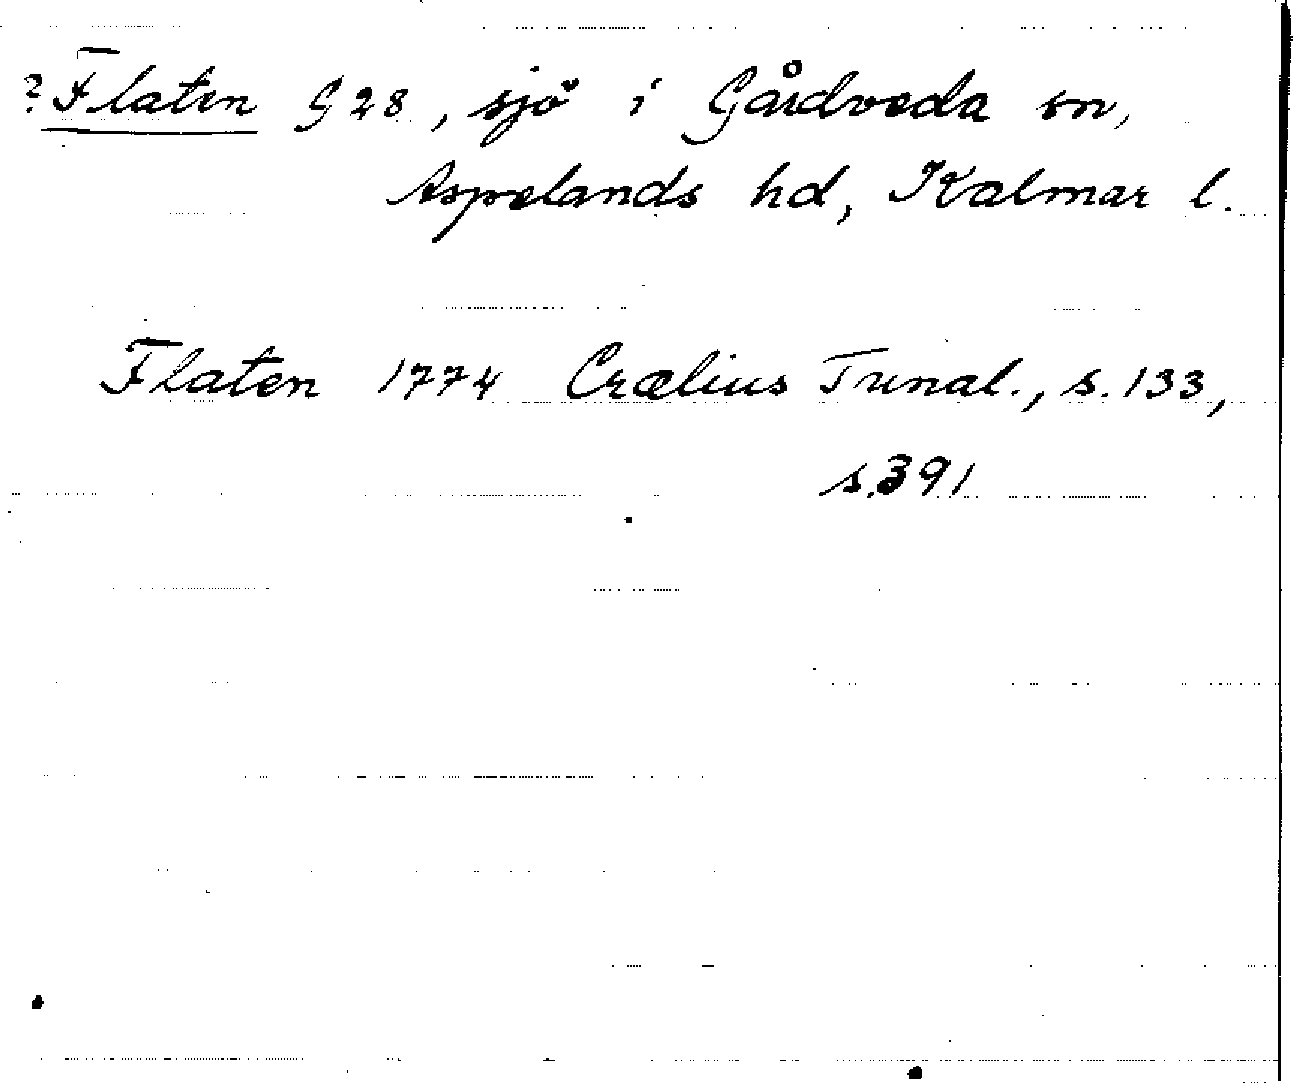 ?Flaten G 28, sjö i Gårdveda sn,
Aspelands hd, Kalmar l.
Flaten 1774 Crælius Tunal., s. 133,
s. 391